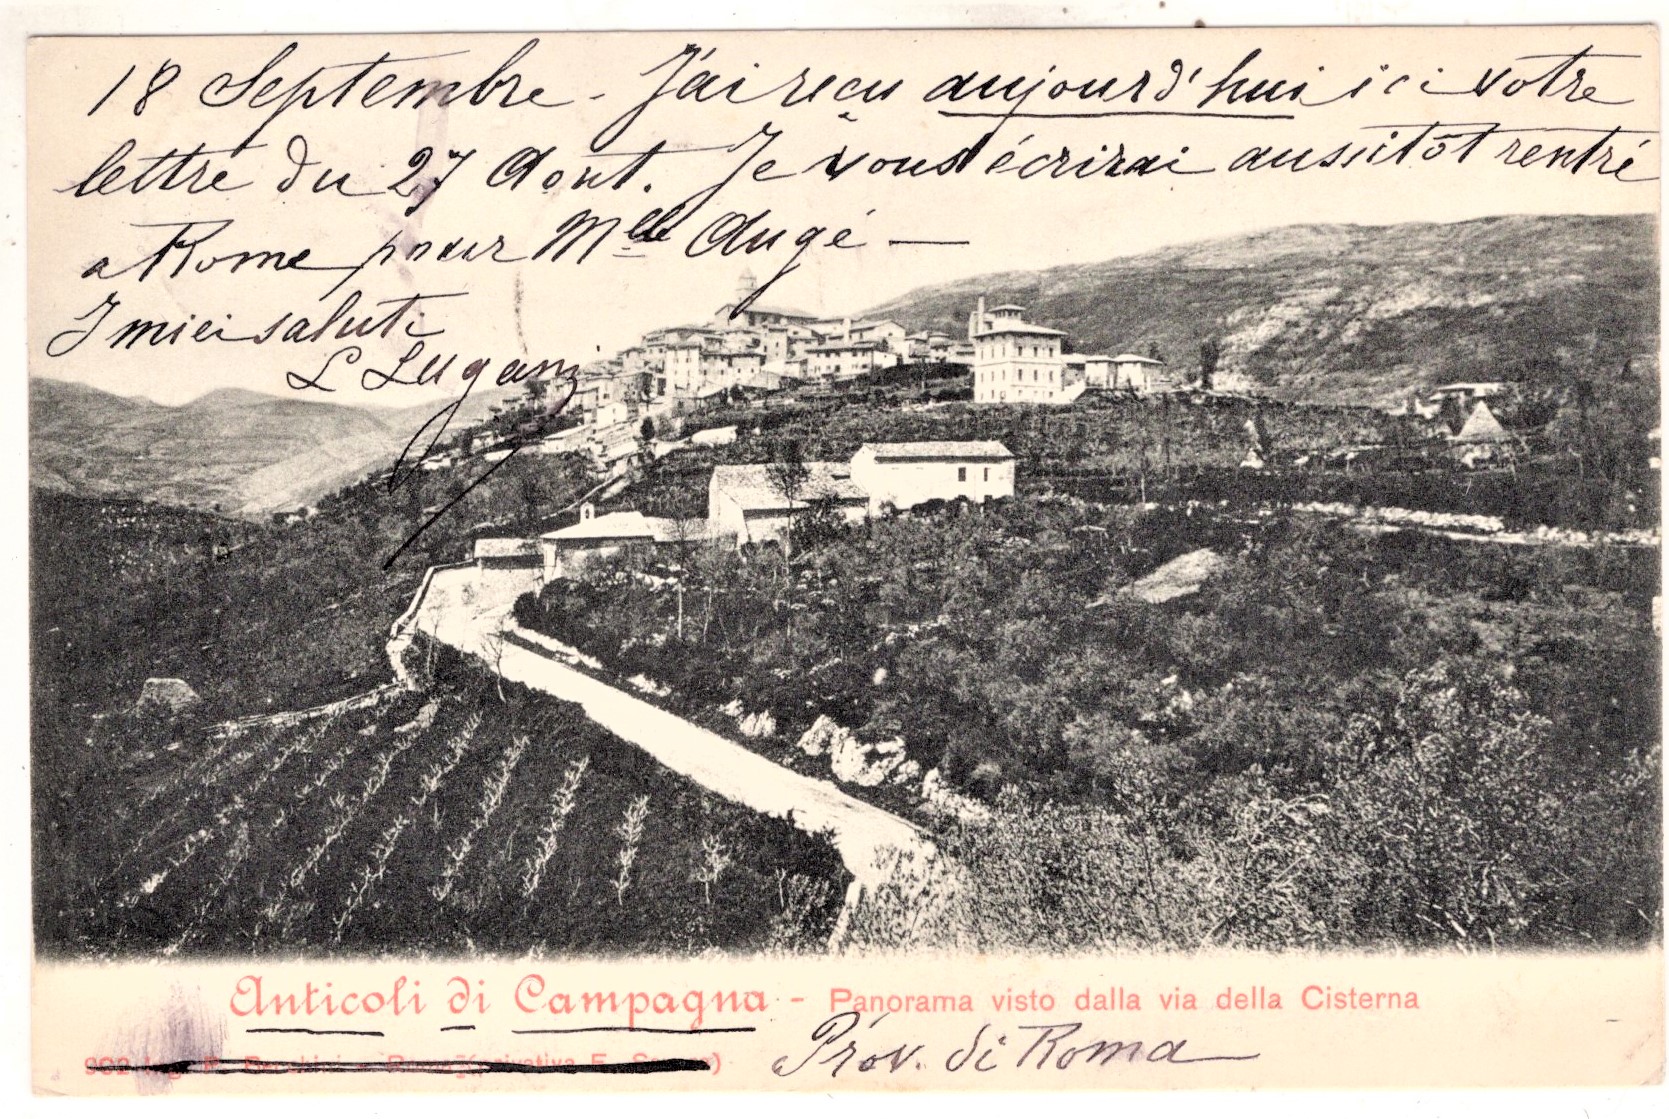 18 Septembre - J'ai reçu aujourd'hui ici votre
lettre du 27 Aout. Je vous écrirai aussitôt rentré
a Rome pour Mlle Augé —
I miei saluti
L Lugani
Anticoli di Campagna - Panorama visto dalla via della Cisterna
Prov. di Roma